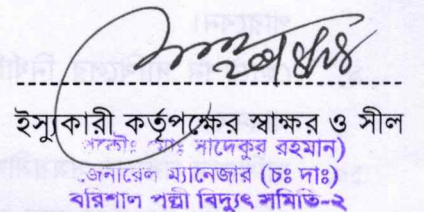 ইস্যুকারী কর্তৃপক্ষের স্বাক্ষর ও সীল
সাদেকুর রহমান)
জেনারেল ম্যানেজার (চঃ দাঃ)
বরিশাল পল্লী বিদ্যুৎ সমিতি-২